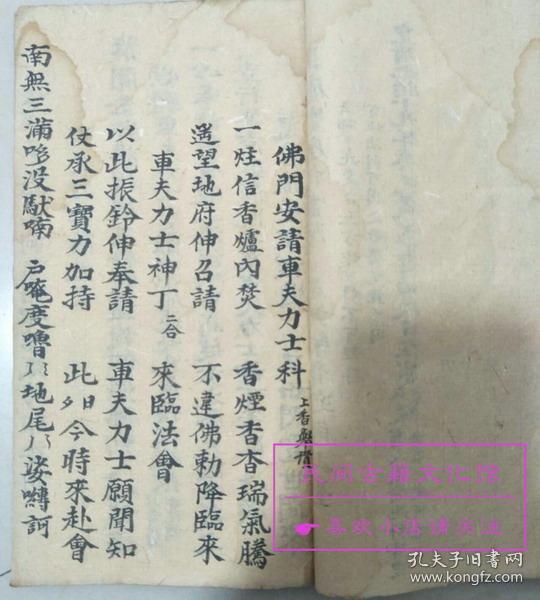 佛門安請車夫力士科 上香
一炷信香爐內焚 香煙香杳瑞氣騰
遥望地府伸召請 不違佛勅降臨來
車夫力士神丁 二合 來臨法會
以此振鈴伸奉請 車夫力士願聞知
仗承三寶力加持 此日今時來赴會
南無三滿哆没馱喃 唵度嚕地尾娑囀訶
民间古籍文化馆
喜欢小店请关注
孔夫子旧书网
www.kongfz.com